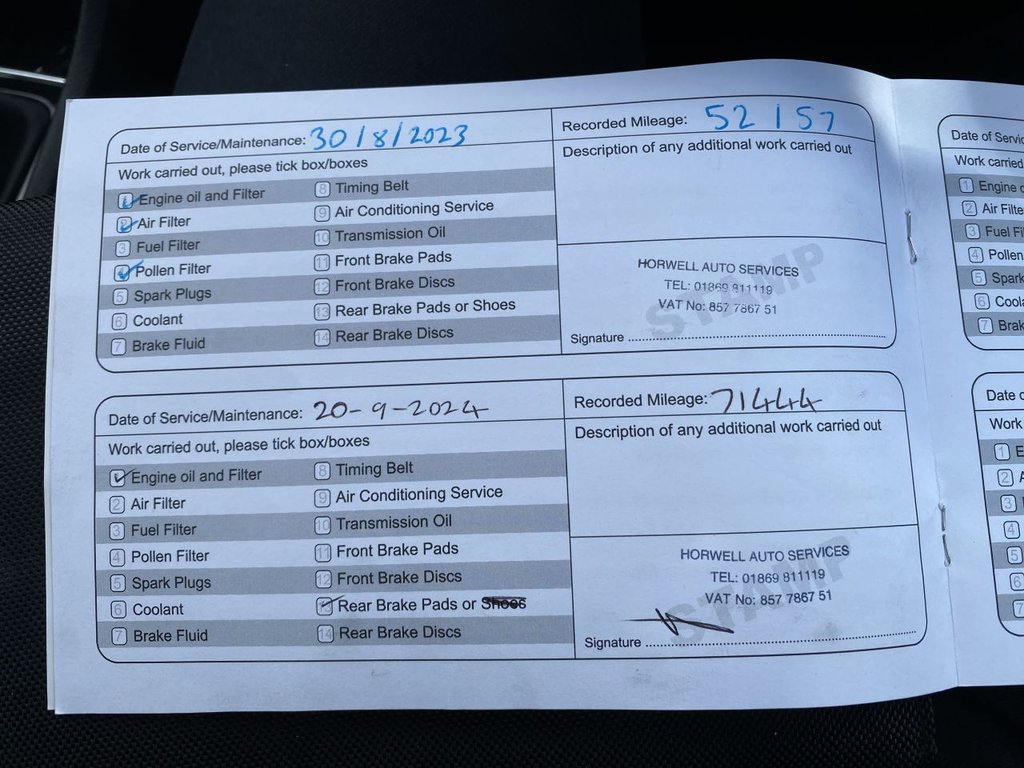 Date of Service/Maintenance: 30/8/2023
Recorded Mileage: 52157
Work carried out, please tick box/boxes
Description of any additional work carried out
1 Engine oil and Filter
2 Air Filter
3 Fuel Filter
4 Pollen Filter
5 Spark Plugs
6 Coolant
7 Brake Fluid
8 Timing Belt
9 Air Conditioning Service
10 Transmission Oil
11 Front Brake Pads
12 Front Brake Discs
13 Rear Brake Pads or Shoes
14 Rear Brake Discs
STAMP
HORWELL AUTO SERVICES
TEL: 01869 811119
VAT No: 857 7867 51
Signature
Date of Service/Maintenance: 20-9-2024
Recorded Mileage: 71444
Work carried out, please tick box/boxes
Description of any additional work carried out
1 Engine oil and Filter
2 Air Filter
3 Fuel Filter
4 Pollen Filter
5 Spark Plugs
6 Coolant
7 Brake Fluid
8 Timing Belt
9 Air Conditioning Service
10 Transmission Oil
11 Front Brake Pads
12 Front Brake Discs
13 Rear Brake Pads or Shoes
14 Rear Brake Discs
STAMP
HORWELL AUTO SERVICES
TEL: 01869 811119
VAT No: 857 7867 51
Signature
Date of Servic
Work carried
1 Engine o
2 Air Filte
3 Fuel Fil
4 Pollen
5 Spark
6 Coola
7 Brak
Date o
Work
1 E
2 A
3
4
5
6
7